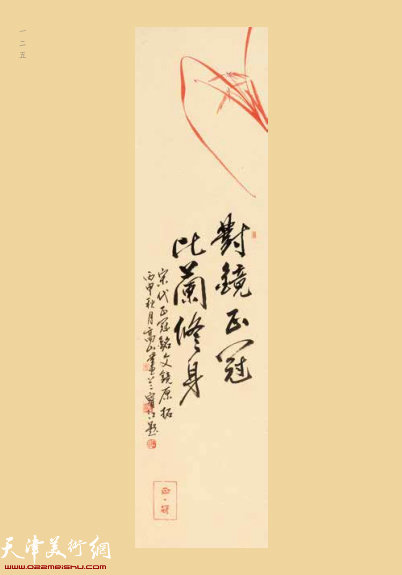 一二五
對鏡正冠
比蘭修身
宋代正冠銘文鏡原拓
丙申秋月高山畫蘭
天津美術網
www.022meishu.com